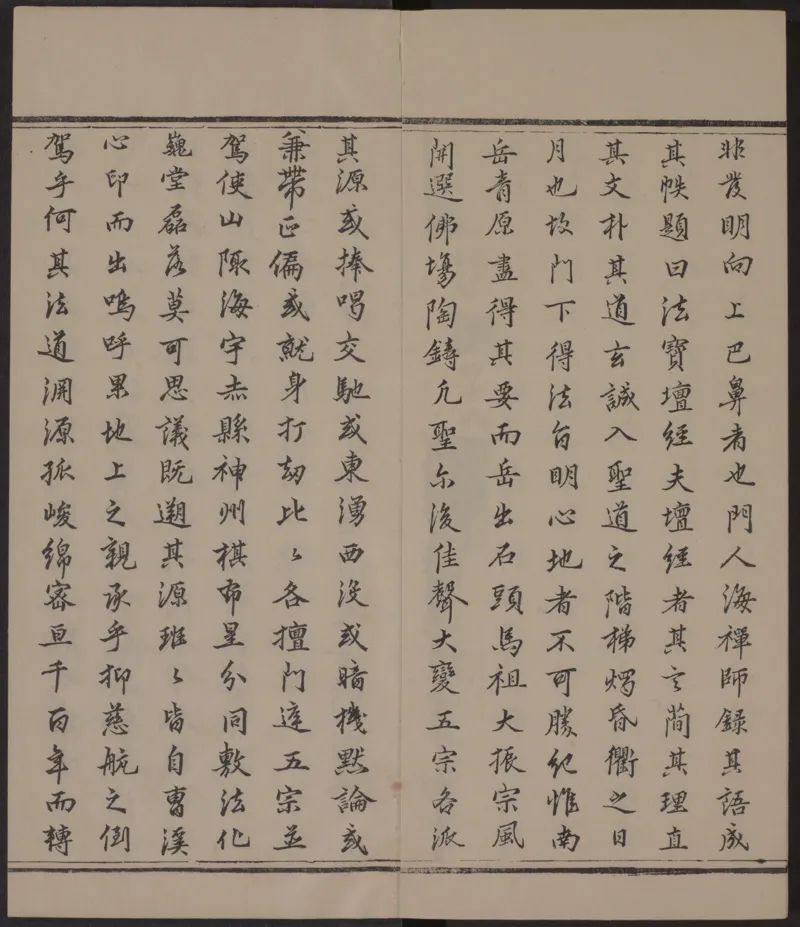 非發明向上巴鼻者也門人海禪師錄其語成
其帙題曰法寶壇經夫壇經者其言簡其理直
其文朴其道玄誠入聖道之階梯燭昏衢之日
月也故門下得法旨明心地者不可勝紀惟南
岳青原盡得其要而岳出石頭馬祖大振宗風
開選佛場陶鑄凡聖尒後佳聲大變五宗各派
其源或捧喝交馳或東湧西沒或暗機默論或
兼帶正偏或就身打劫比〻各擅門迮五宗並
駕使山陬海宇赤縣神州棋布星分同敷法化
巍堂磊落莫可思議既遡其源班〻皆自曹溪
心印而出嗚呼累地上之親承乎抑慈航之倒
駕乎何其法道淵源孤峻綿密亘千百年而轉